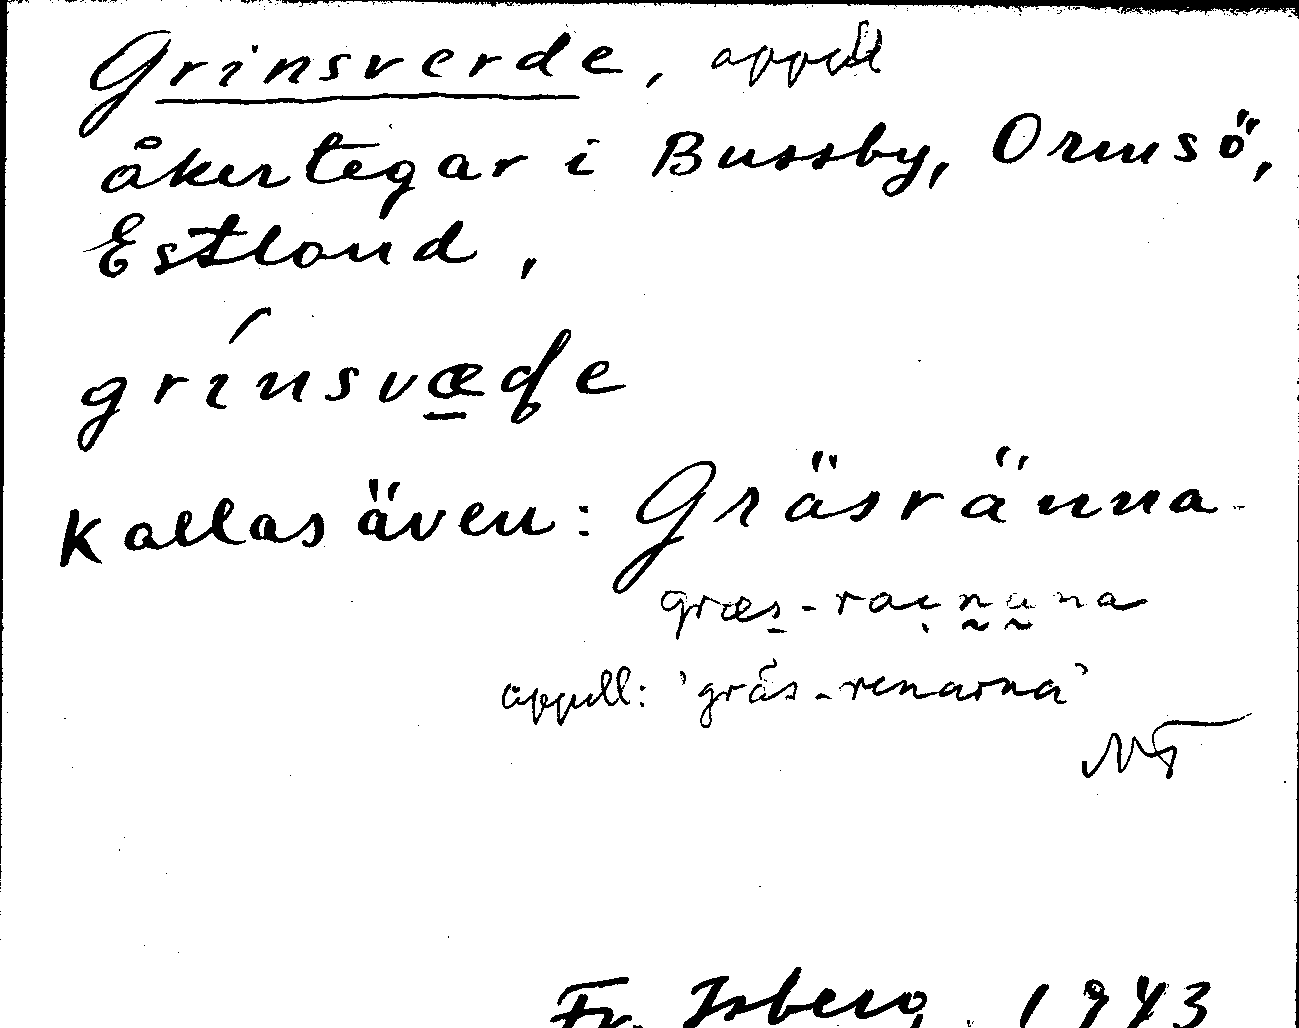 Grinsverde, appell
åkertegar i Bussby, Ormsö,
Estland,
grínsvæde
Kallas även: Gräsränna
græs-rainana
appell: 'gräs-renarna'
NT
Fr. Isberg 1943